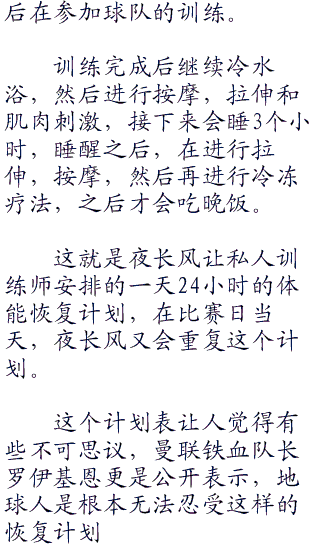 后在参加球队的训练。
训练完成后继续冷水
浴，然后进行按摩，拉伸和
肌肉刺激，接下来会睡3个小
时，睡醒之后，在进行拉
伸，按摩，然后再进行冷冻
疗法，之后才会吃晚饭。
这就是夜长风让私人训
练师安排的一天24小时的体
能恢复计划，在比赛日当
天，夜长风又会重复这个计
划。
这个计划表让人觉得有
些不可思议，曼联铁血队长
罗伊基恩更是公开表示，地
球人是根本无法忍受这样的
恢复计划